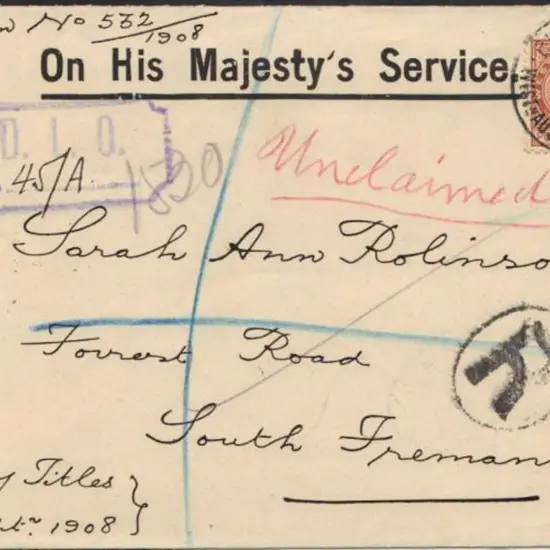 No 532/1908
On His Majesty's Service.
D. L. O.
45/A.
1830
Unclaimed
Sarah Ann Rolinso
Forrest Road
South Freman
R
y Titles
1908